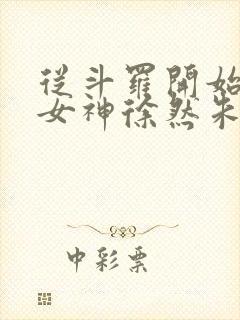 從斗羅開始
女神徐然朱
中彩票